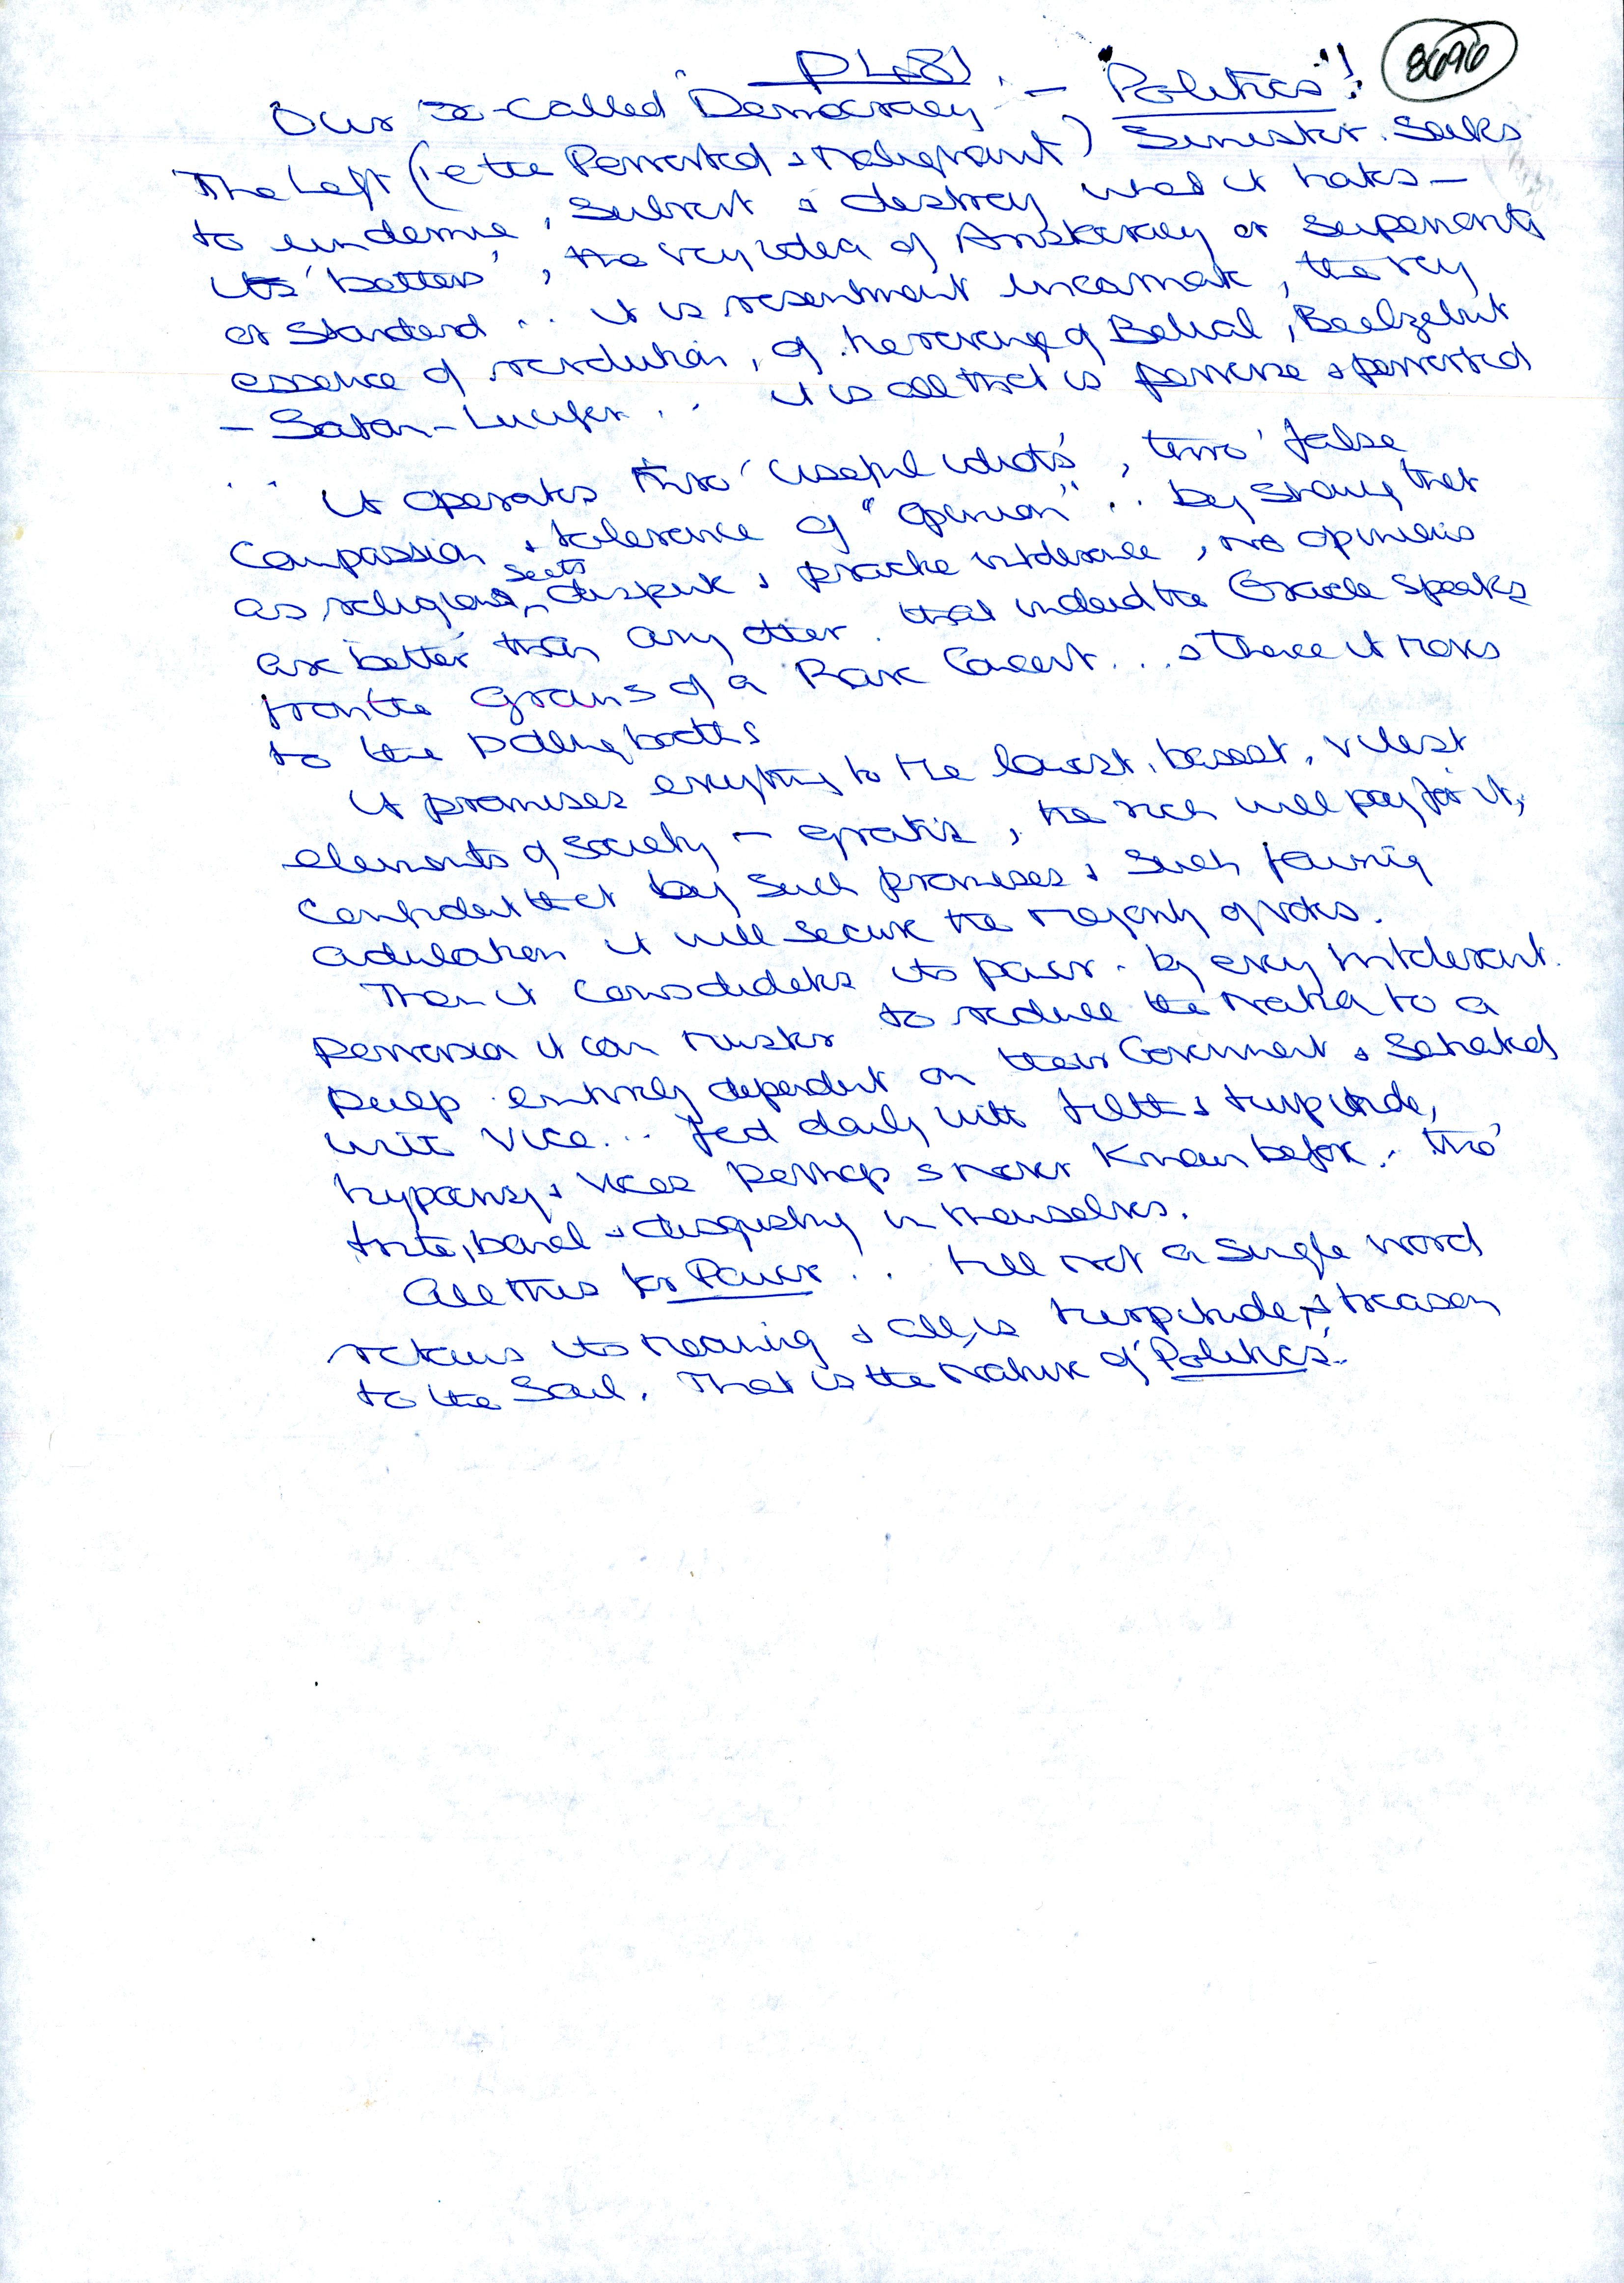 8696
Our so-called Democracy — "Politics"!
The Left (ie the Perverted & Malignant) Sinister. Seeks
to undermine, subvert & destroy what it hates —
its 'betters', the very idea of Aristocracy or superiority
or Standard .. it is resentment incarnate, the very
essence of revolution, of the revenge of Belial, Beelzebub
— Satan - Lucifer ... it is all that is perverse & perverted
.. it operates thro' 'useful idiots', thro' false
Compassion & tolerance of "opinion" .. by that
as religious sects dispute & practice intolerance, no opinions
are better than any other. that indeed the Oracle speaks
from the groans of a Rock Concert ... & thence it moves
to the Polling booths
it promises everything to the lowest, basest, vilest
elements of society — gratis, the rich will pay for it,
confident that by such promises & such fawning
adulation it will secure the majority of votes.
Then it consolidates its power - by every intolerant
perversion it can muster to reduce the Nation to a
pulp entirely dependent on their Government & Satiated
with vice ... fed daily with filth & turpitude,
hypocrisy & vices perhaps never known before, tho'
trite, banal & disgusting in themselves.
All this for Power .. till not a single word
retains its meaning & all is turpitude, & treason
to the Soul. That is the Nature of 'Politics'.